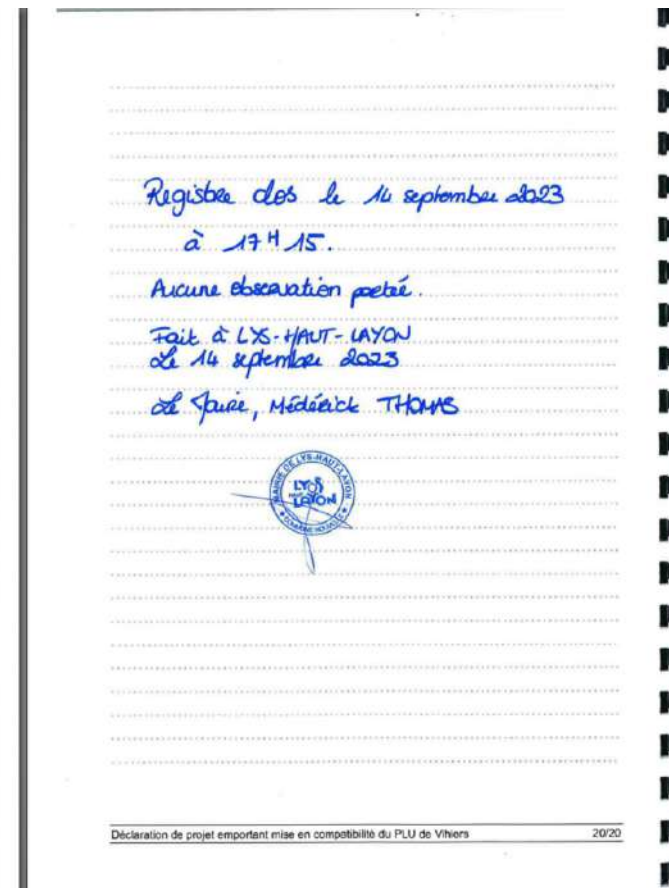 Registre clos le 14 septembre 2023
à 17 H 15.
Aucune observation portée.
Fait à LYS-HAUT-LAYON
Le 14 septembre 2023
Le Maire, Médérick THOMAS
MAIRIE DE LYS-HAUT-LAYON
LYS
HAUT
LAYON
COMMUNE NOUVELLE
Déclaration de projet emportant mise en compatibilité du PLU de Vihiers 20/20